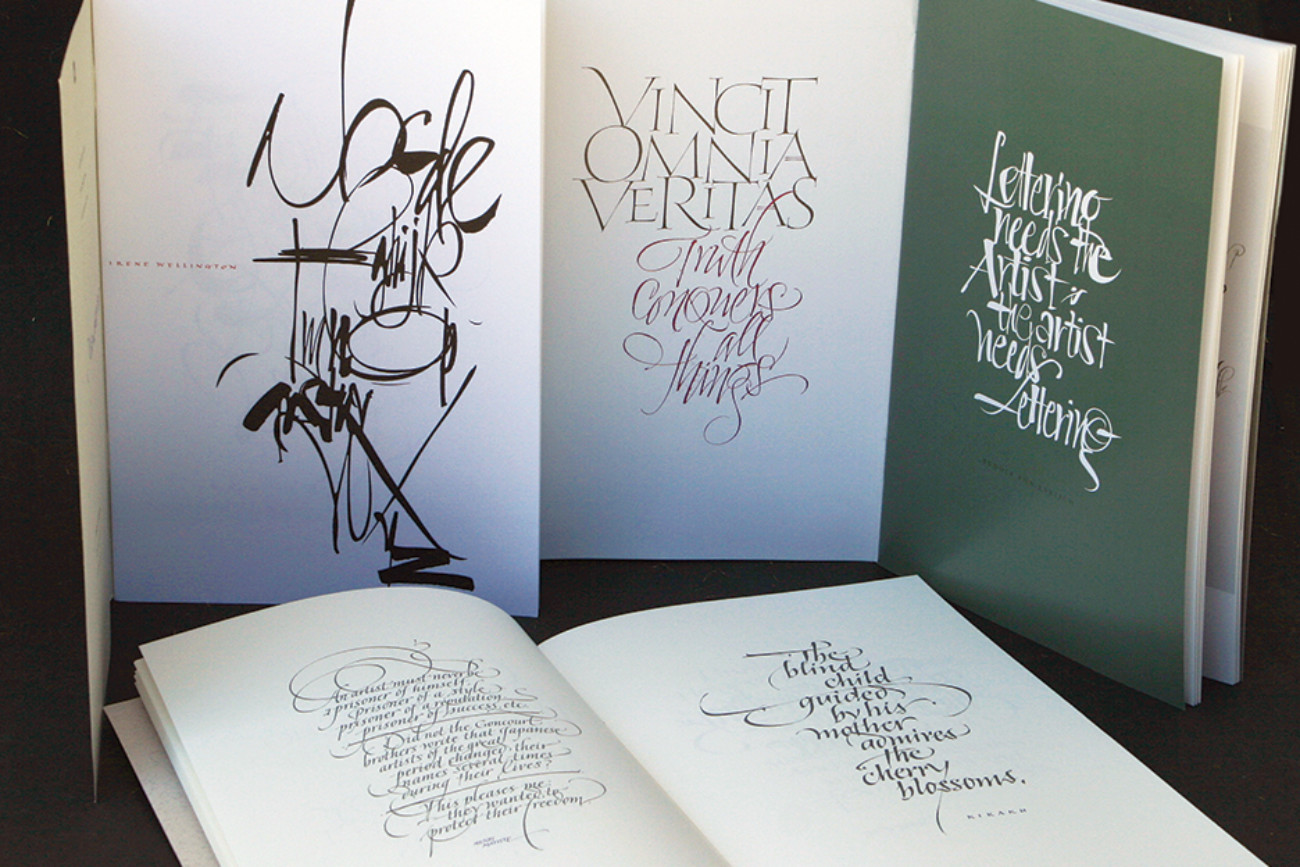 IRENE WELLINGTON
VINCIT
OMNIA
VERITAS
Truth
conquers
all
things
Lettering
needs the
Artist as
the artist
needs
Lettering
An artist must never be
a prisoner of himself,
prisoner of a style,
prisoner of a reputation,
prisoner of success, etc.
Did not the Goncourt
brothers write that Japanese
artists of the great
period changed their
names several times
during their lives?
This pleases me,
they wanted to
protect their freedom
The
blind
child
guided
by his
mother
admires
the
cherry
blossoms.
KIKAKU